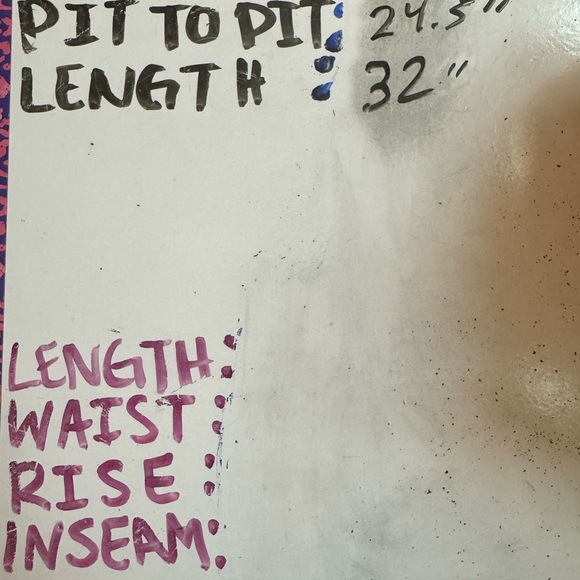 PIT TO PIT: 24.5"
LENGTH : 32"
LENGTH:
WAIST :
RISE :
INSEAM: